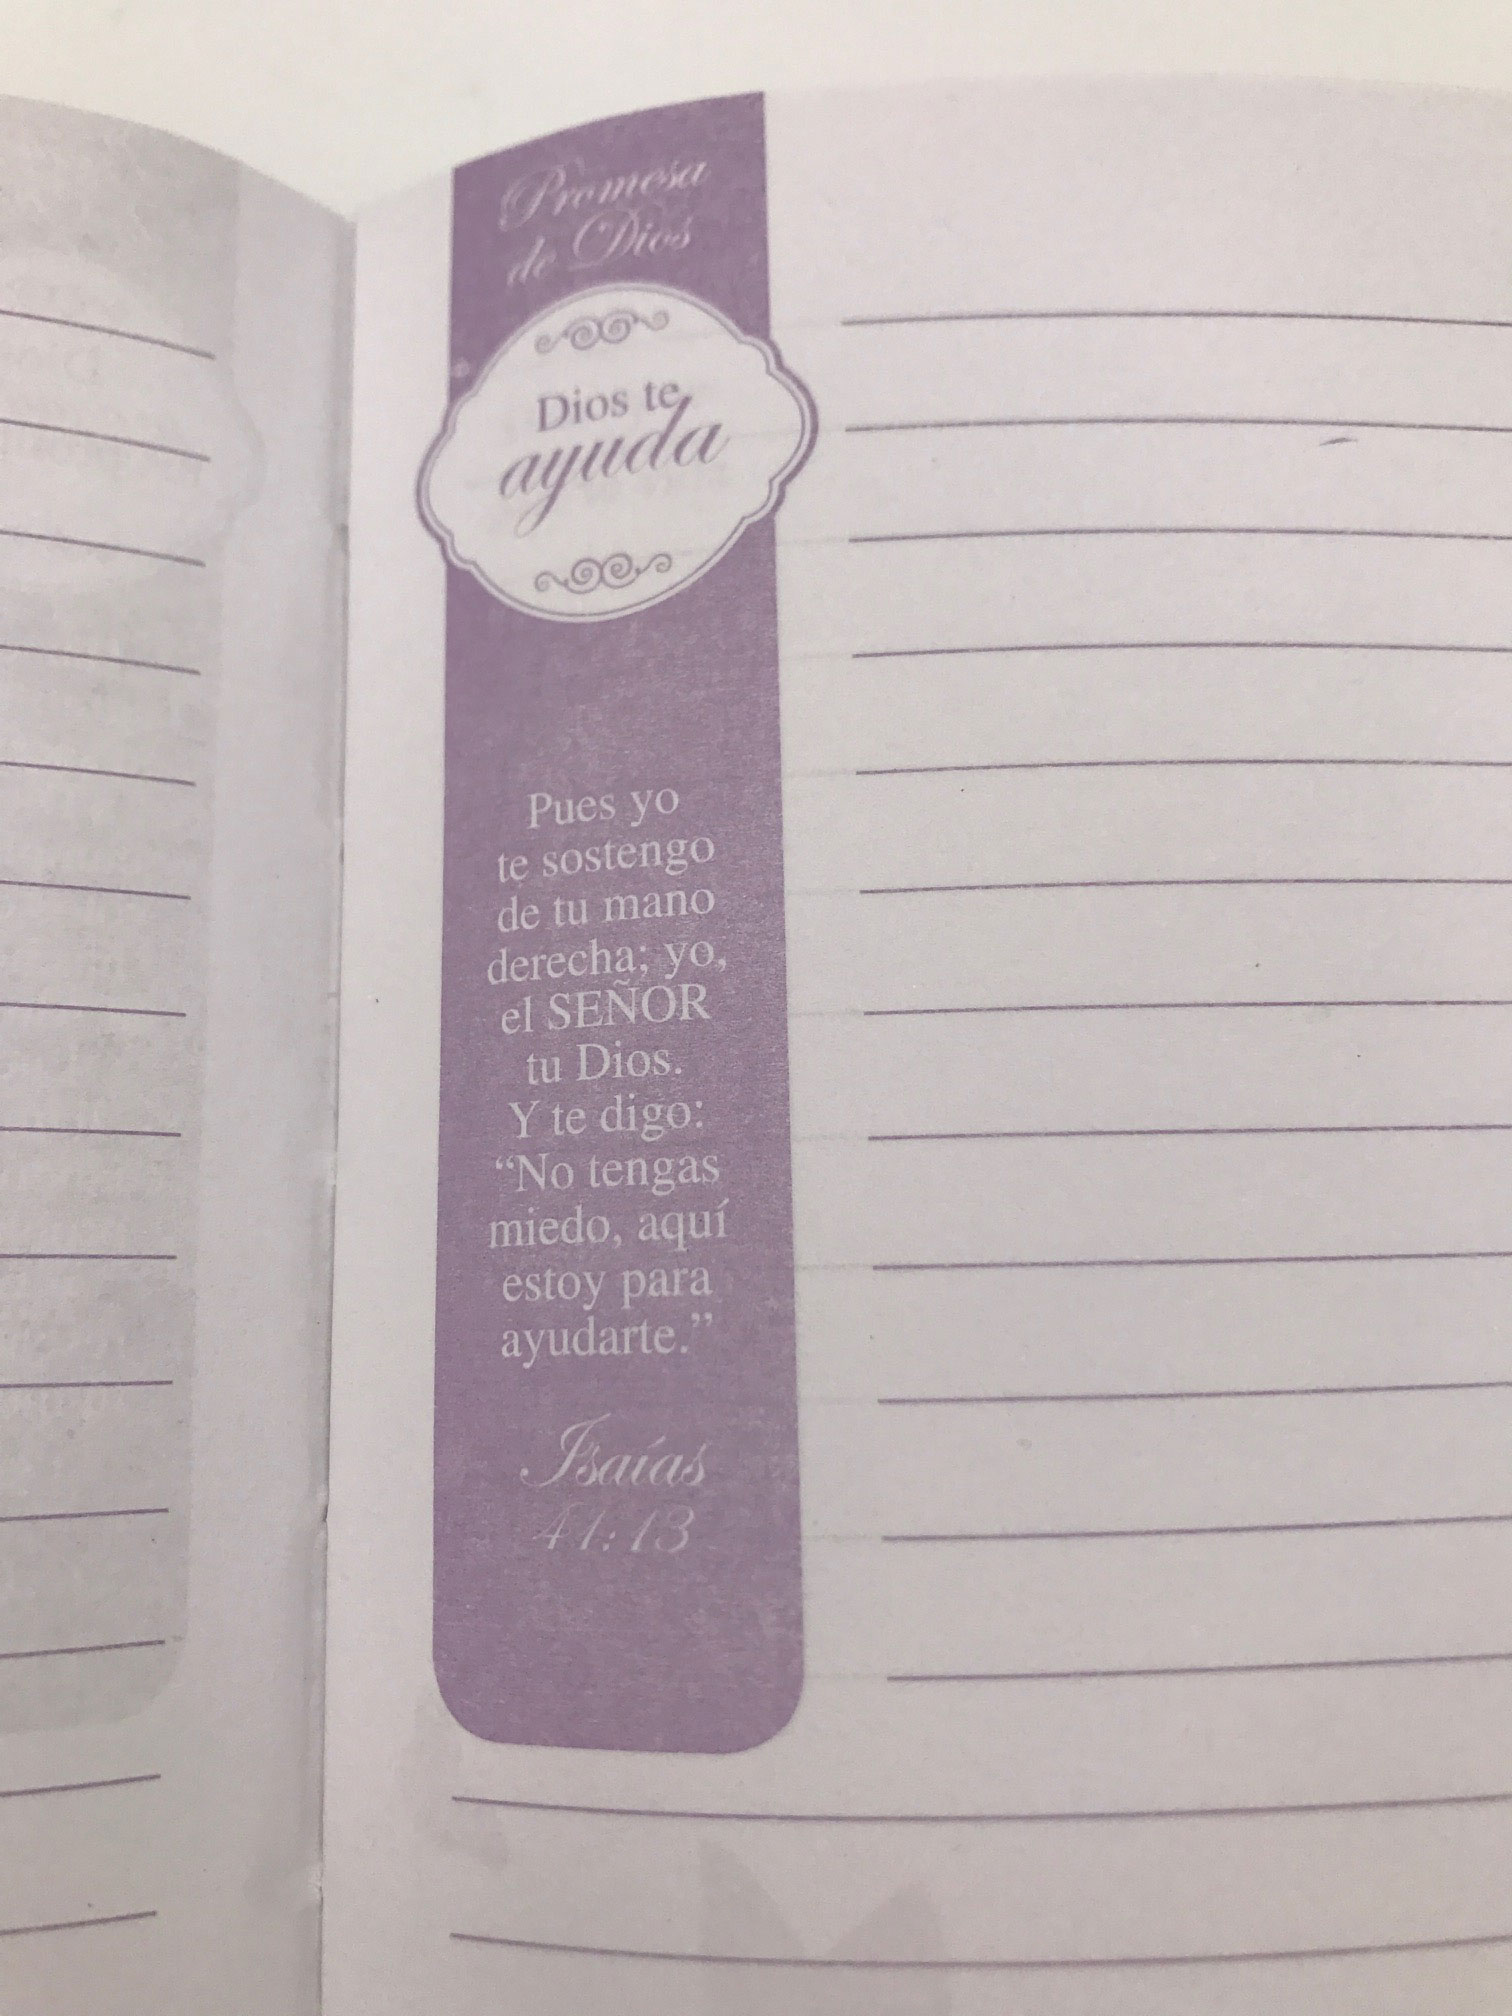 Promesa
de Dios
Dios te
ayuda
Pues yo
te sostengo
de tu mano
derecha; yo,
el SEÑOR
tu Dios.
Y te digo:
“No tengas
miedo, aquí
estoy para
ayudarte.”
Isaías
41:13